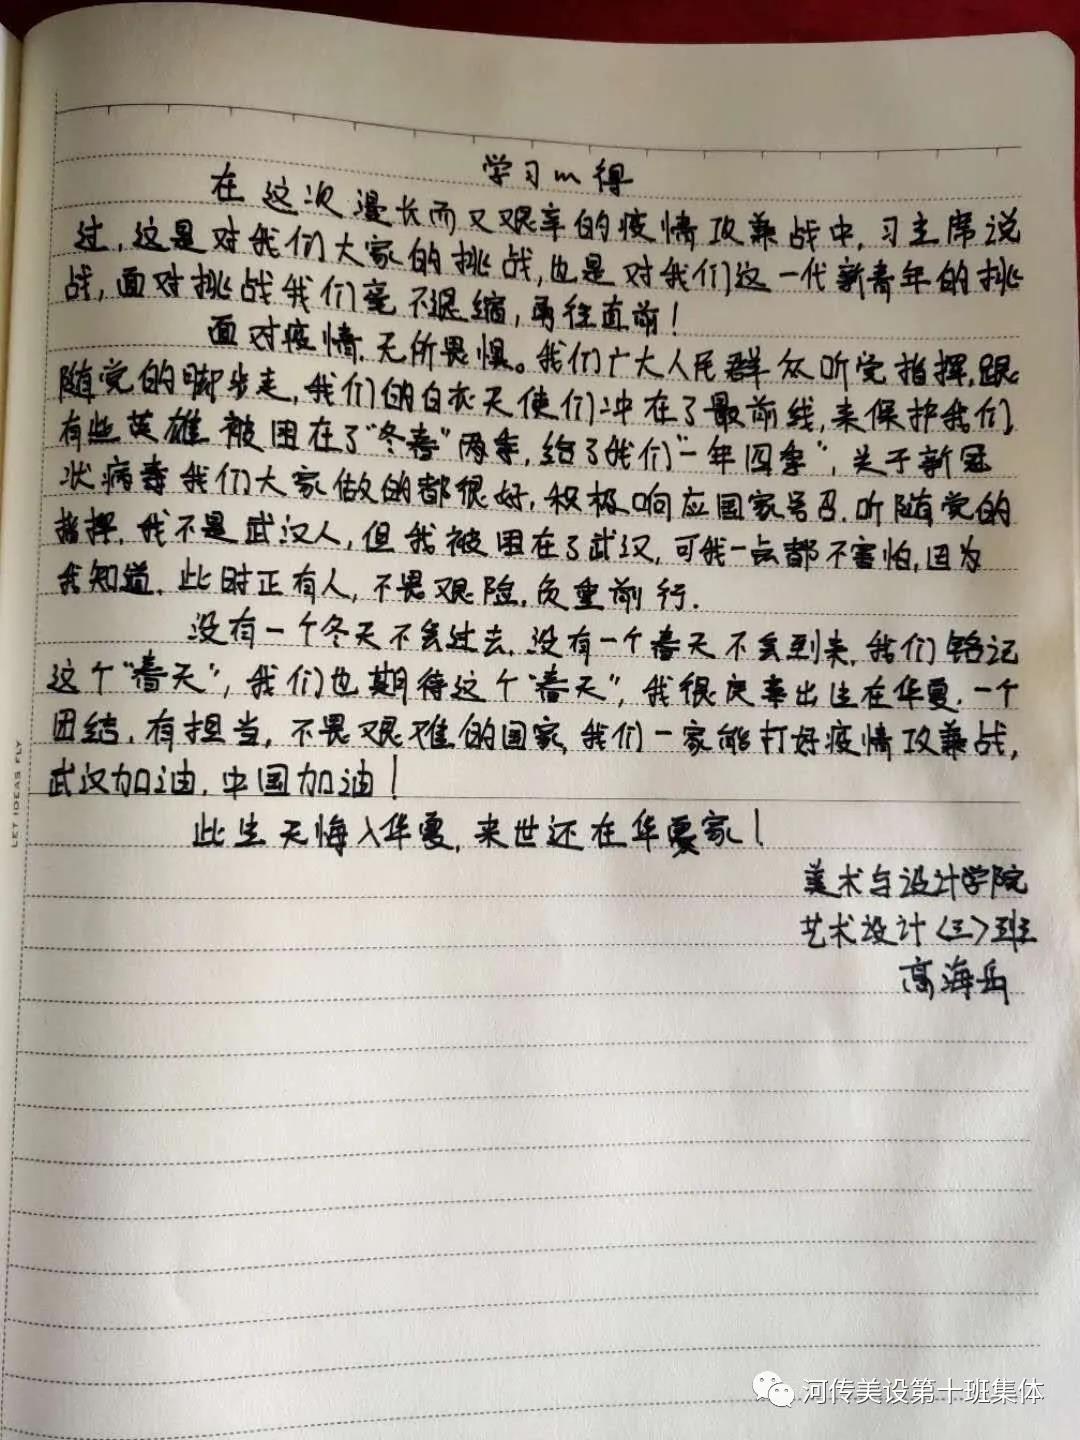 学习心得
在这次漫长而又艰辛的疫情攻兼战中,习主席说
过,这是对我们大家的挑战,也是对我们这一代新青年的挑
战,面对挑战我们毫不退缩,勇往直前!
面对疫情,无所畏惧。我们广大人民群众听党指挥,跟
随党的脚步走,我们的白衣天使们冲在了最前线,来保护我们,
有些英雄被困在了“冬春”两季,给了我们“一年四季”,关于新冠
状病毒我们大家做的都很好,积极响应国家号召,听随党的
指挥,我不是武汉人,但我被困在了武汉,可我一点都不害怕,因为
我知道,此时正有人,不畏艰险,负重前行.
没有一个冬天不会过去,没有一个春天不会到来,我们铭记
这个“春天”,我们也期待这个“春天”,我很庆幸出生在华夏,一个
团结,有担当,不畏艰难的国家,我们一家能打好疫情攻兼战,
武汉加油,中国加油!
此生无悔入华夏,来世还在华夏家!
美术与设计学院
艺术设计(三)班
高海岳
LET IDEAS FLY
河传美设第十班集体